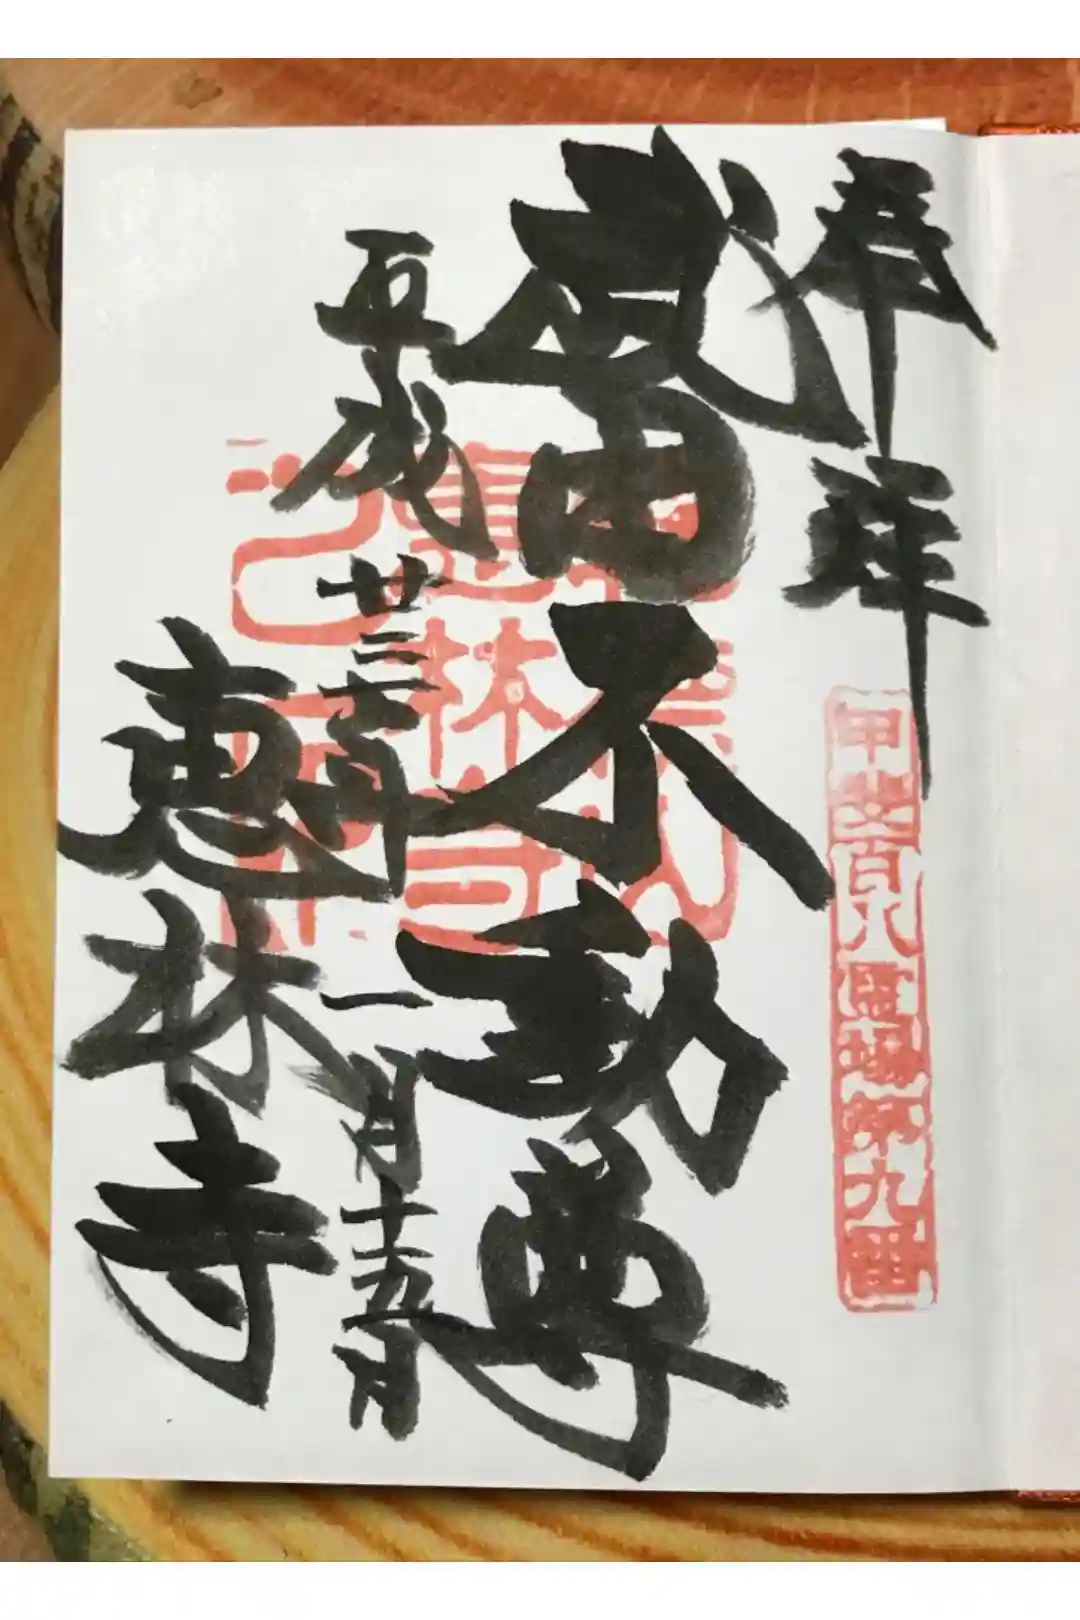 奉拝
甲斐百八霊場第九番
武田不動尊
平成廿三年一月十九日
恵林寺